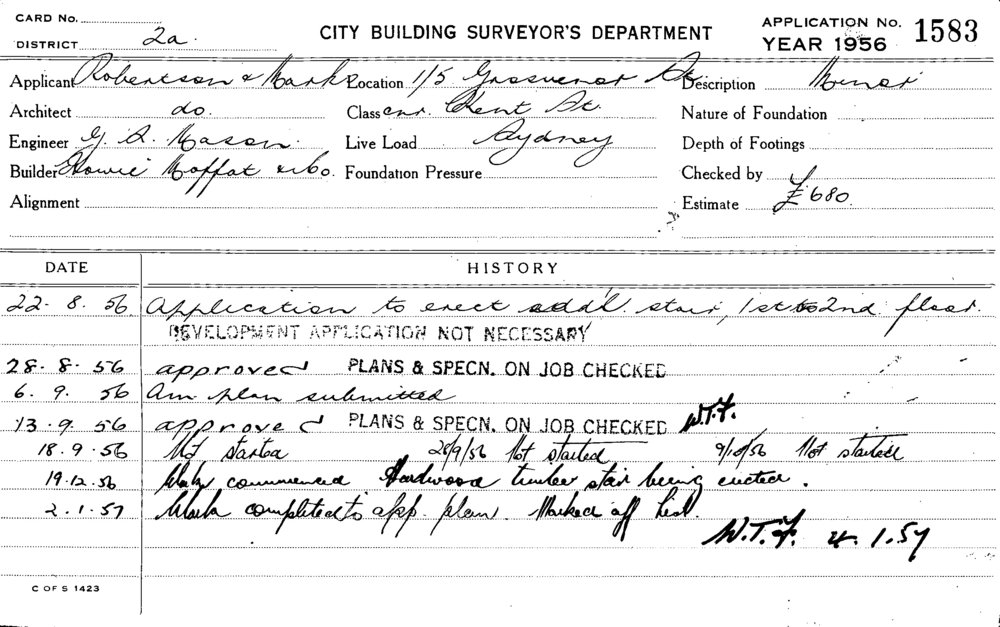 CARD No.
DISTRICT 2a.
CITY BUILDING SURVEYOR'S DEPARTMENT
APPLICATION No. 1583
YEAR 1956
Applicant Robertson & Marks Location 1/5 Grosvenor St. Description Minor
Architect do. Class cnr. Kent St. Nature of Foundation
Engineer G. A. Mason. Live Load Sydney Depth of Footings
Builder Howie Moffat & Co. Foundation Pressure Checked by
Alignment Estimate £680.
DATE HISTORY
22. 8. 56. Application to erect addl. stair, 1st to 2nd floor.
DEVELOPMENT APPLICATION NOT NECESSARY
28. 8. 56 approved PLANS & SPECN. ON JOB CHECKED
6. 9. 56 Am plan submitted
13. 9. 56 approved PLANS & SPECN. ON JOB CHECKED W.T.F.
18. 9. 56 Not started 28/9/56 Not started 9/10/56 Not started
19.12.56 Work commenced Hardwood timber stair being erected.
2. 1. 57 Work completed to app. plan. Marked off
W.T.F. 4. 1. 57
C OF S 1423